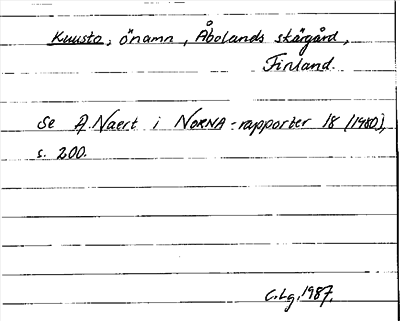 Kuusto, önamn, Åbolands skärgård,
Finland.
Se A. Naert i NORNA-rapporter 18 (1980),
s. 200.
C.Lg. 1987.